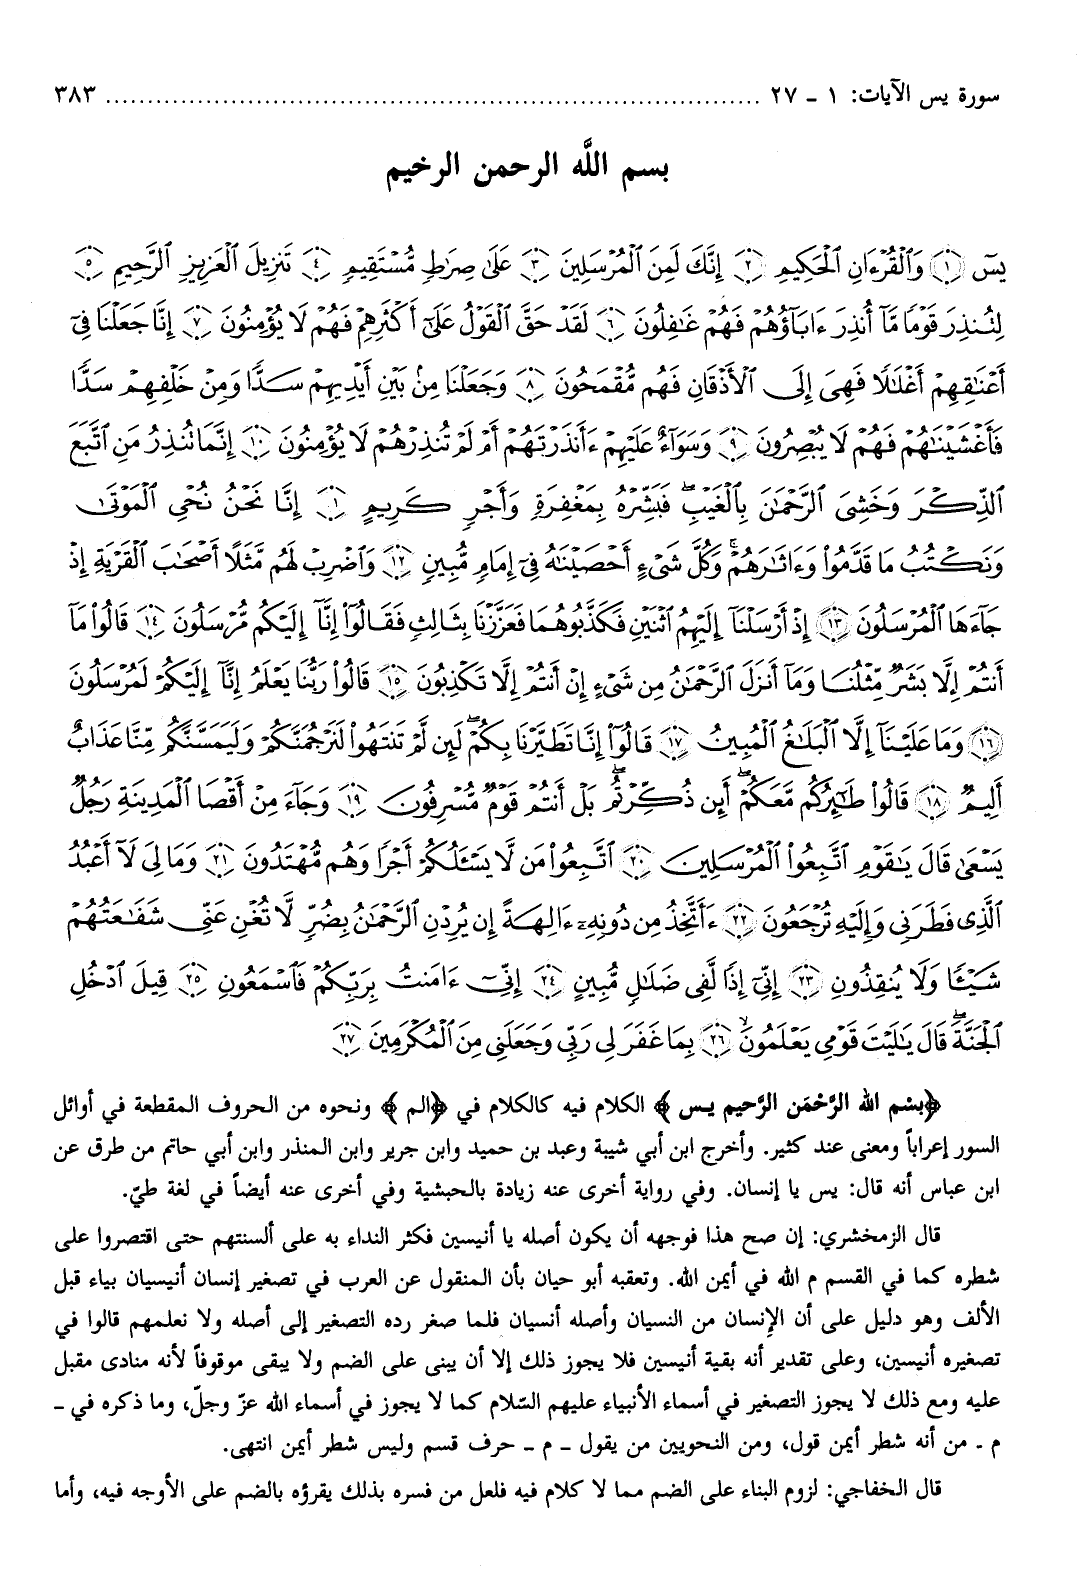 سورة يس الآيات: ١ ـ ٢٧ ........................................................................ ٣٨٣
بسم اللَّه الرحمن الرحيم
يسٓ ﴿١﴾ وَٱلْقُرْءَانِ ٱلْحَكِيمِ ﴿٢﴾ إِنَّكَ لَمِنَ ٱلْمُرْسَلِينَ ﴿٣﴾ عَلَىٰ صِرَٰطٍ مُّسْتَقِيمٍ ﴿٤﴾ تَنزِيلَ ٱلْعَزِيزِ ٱلرَّحِيمِ ﴿٥﴾
لِتُنذِرَ قَوْمًا مَّآ أُنذِرَ ءَابَآؤُهُمْ فَهُمْ غَٰفِلُونَ ﴿٦﴾ لَقَدْ حَقَّ ٱلْقَوْلُ عَلَىٰٓ أَكْثَرِهِمْ فَهُمْ لَا يُؤْمِنُونَ ﴿٧﴾ إِنَّا جَعَلْنَا فِىٓ
أَعْنَٰقِهِمْ أَغْلَٰلًا فَهِىَ إِلَى ٱلْأَذْقَانِ فَهُم مُّقْمَحُونَ ﴿٨﴾ وَجَعَلْنَا مِنۢ بَيْنِ أَيْدِيهِمْ سَدًّا وَمِنْ خَلْفِهِمْ سَدًّا
فَأَغْشَيْنَٰهُمْ فَهُمْ لَا يُبْصِرُونَ ﴿٩﴾ وَسَوَآءٌ عَلَيْهِمْ ءَأَنذَرْتَهُمْ أَمْ لَمْ تُنذِرْهُمْ لَا يُؤْمِنُونَ ﴿١٠﴾ إِنَّمَا تُنذِرُ مَنِ ٱتَّبَعَ
ٱلذِّكْرَ وَخَشِىَ ٱلرَّحْمَٰنَ بِٱلْغَيْبِ ۖ فَبَشِّرْهُ بِمَغْفِرَةٍ وَأَجْرٍ كَرِيمٍ ﴿١١﴾ إِنَّا نَحْنُ نُحْىِ ٱلْمَوْتَىٰ
وَنَكْتُبُ مَا قَدَّمُوا۟ وَءَاثَٰرَهُمْ ۚ وَكُلَّ شَىْءٍ أَحْصَيْنَٰهُ فِىٓ إِمَامٍ مُّبِينٍ ﴿١٢﴾ وَٱضْرِبْ لَهُم مَّثَلًا أَصْحَٰبَ ٱلْقَرْيَةِ إِذْ
جَآءَهَا ٱلْمُرْسَلُونَ ﴿١٣﴾ إِذْ أَرْسَلْنَآ إِلَيْهِمُ ٱثْنَيْنِ فَكَذَّبُوهُمَا فَعَزَّزْنَا بِثَالِثٍ فَقَالُوٓا۟ إِنَّآ إِلَيْكُم مُّرْسَلُونَ ﴿١٤﴾ قَالُوا۟ مَآ
أَنتُمْ إِلَّا بَشَرٌ مِّثْلُنَا وَمَآ أَنزَلَ ٱلرَّحْمَٰنُ مِن شَىْءٍ إِنْ أَنتُمْ إِلَّا تَكْذِبُونَ ﴿١٥﴾ قَالُوا۟ رَبُّنَا يَعْلَمُ إِنَّآ إِلَيْكُمْ لَمُرْسَلُونَ
﴿١٦﴾ وَمَا عَلَيْنَآ إِلَّا ٱلْبَلَٰغُ ٱلْمُبِينُ ﴿١٧﴾ قَالُوٓا۟ إِنَّا تَطَيَّرْنَا بِكُمْ ۖ لَئِن لَّمْ تَنتَهُوا۟ لَنَرْجُمَنَّكُمْ وَلَيَمَسَّنَّكُم مِّنَّا عَذَابٌ
أَلِيمٌ ﴿١٨﴾ قَالُوا۟ طَٰٓئِرُكُم مَّعَكُمْ ۚ أَئِن ذُكِّرْتُم ۚ بَلْ أَنتُمْ قَوْمٌ مُّسْرِفُونَ ﴿١٩﴾ وَجَآءَ مِنْ أَقْصَا ٱلْمَدِينَةِ رَجُلٌ
يَسْعَىٰ قَالَ يَٰقَوْمِ ٱتَّبِعُوا۟ ٱلْمُرْسَلِينَ ﴿٢٠﴾ ٱتَّبِعُوا۟ مَن لَّا يَسْـَٔلُكُمْ أَجْرًا وَهُم مُّهْتَدُونَ ﴿٢١﴾ وَمَا لِىَ لَآ أَعْبُدُ
ٱلَّذِى فَطَرَنِى وَإِلَيْهِ تُرْجَعُونَ ﴿٢٢﴾ ءَأَتَّخِذُ مِن دُونِهِۦٓ ءَالِهَةً إِن يُرِدْنِ ٱلرَّحْمَٰنُ بِضُرٍّ لَّا تُغْنِ عَنِّى شَفَٰعَتُهُمْ
شَيْـًٔا وَلَا يُنقِذُونِ ﴿٢٣﴾ إِنِّىٓ إِذًا لَّفِى ضَلَٰلٍ مُّبِينٍ ﴿٢٤﴾ إِنِّىٓ ءَامَنتُ بِرَبِّكُمْ فَٱسْمَعُونِ ﴿٢٥﴾ قِيلَ ٱدْخُلِ
ٱلْجَنَّةَ ۖ قَالَ يَٰلَيْتَ قَوْمِى يَعْلَمُونَ ﴿٢٦﴾ بِمَا غَفَرَ لِى رَبِّى وَجَعَلَنِى مِنَ ٱلْمُكْرَمِينَ ﴿٢٧﴾
﴿بِسْم الله الرَّحْمَن الرَّحيم يس﴾ الكلام فيه كالكلام في ﴿الم﴾ ونحوه من الحروف المقطعة في أوائل
السور إعراباً ومعنى عند كثير. وأخرج ابن أبي شيبة وعبد بن حميد وابن جرير وابن المنذر وابن أبي حاتم من طرق عن
ابن عباس أنه قال: يس يا إنسان. وفي رواية أخرى عنه زيادة بالحبشية وفي أخرى عنه أيضاً في لغة طيّ.
قال الزمخشري: إن صح هذا فوجهه أن يكون أصله يا أنيسين فكثر النداء به على ألسنتهم حتى اقتصروا على
شطره كما في القسم م الله في أيمن الله. وتعقبه أبو حيان بأن المنقول عن العرب في تصغير إنسان أنيسيان بياء قبل
الألف وهو دليل على أن الإنسان من النسيان وأصله أنسيان فلما صغر رده التصغير إلى أصله ولا نعلمهم قالوا في
تصغيره أنيسين، وعلى تقدير أنه بقية أنيسين فلا يجوز ذلك إلا أن يبنى على الضم ولا يبقى موقوفاً لأنه منادى مقبل
عليه ومع ذلك لا يجوز التصغير في أسماء الأنبياء عليهم السّلام كما لا يجوز في أسماء الله عزّ وجلّ، وما ذكره في ـ
م ـ من أنه شطر أيمن قول، ومن النحويين من يقول ـ م ـ حرف قسم وليس شطر أيمن انتهى.
قال الخفاجي: لزوم البناء على الضم مما لا كلام فيه فلعل من فسره بذلك يقرؤه بالضم على الأوجه فيه، وأما